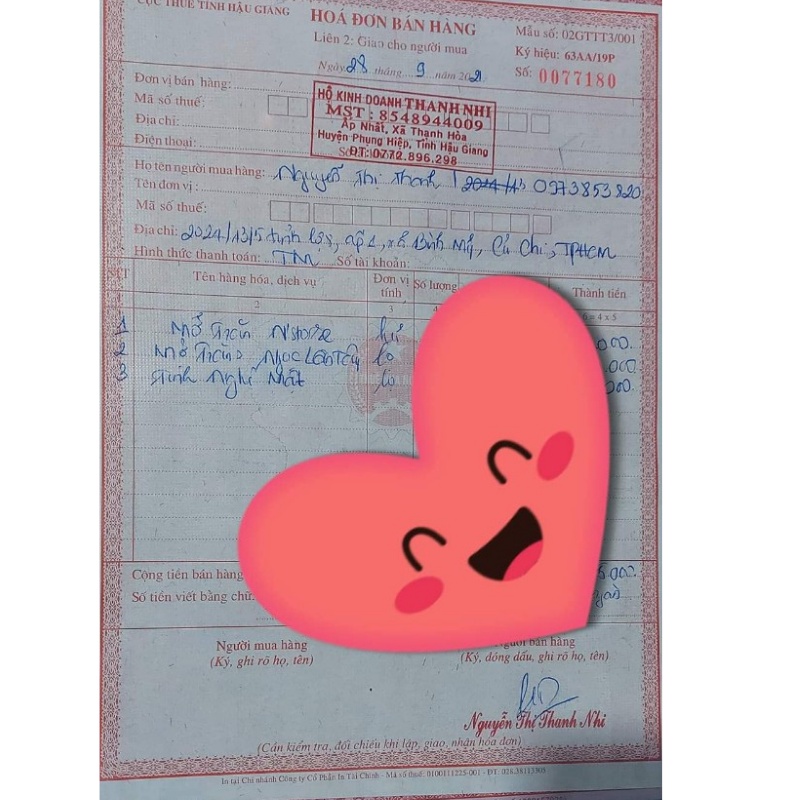 CỤC THUẾ TỈNH HẬU GIANG
HOÁ ĐƠN BÁN HÀNG
Liên 2: Giao cho người mua
Ngày 28 tháng 9 năm 2021
Mẫu số: 02GTTT3/001
Ký hiệu: 63AA/19P
Số: 0077180
Đơn vị bán hàng:
Mã số thuế:
Địa chỉ:
Điện thoại:
HỘ KINH DOANH THANH NHI
MST : 8548944009
Ấp Nhất, Xã Thạnh Hòa
Huyện Phụng Hiệp, Tỉnh Hậu Giang
ĐT: 0772.896.298
Họ tên người mua hàng: Nguyễn Thị Thanh 0973853820
Tên đơn vị :
Mã số thuế:
Địa chỉ: 2024/13/5 tỉnh lộ 8, ấp 1, xã Bình Mỹ, Củ Chi, TPHCM
Hình thức thanh toán: TM Số tài khoản:
STT Tên hàng hóa, dịch vụ Đơn vị tính Số lượng Thành tiền
2 3 4 6 = 4 x 5
1 000.
2 Ngọc 000.
3 Nghệ Nhật 000
Cộng tiền bán hàng 5.000.
Số tiền viết bằng chữ:
Người mua hàng
(Ký, ghi rõ họ, tên)
Người bán hàng
(Ký, đóng dấu, ghi rõ họ, tên)
Nguyễn Thị Thanh Nhi
(Cần kiểm tra, đối chiếu khi lập, giao, nhận hóa đơn)
In tại Chi nhánh Công ty Cổ Phần In Tài Chính - Mã số thuế: 0100111225-001 - ĐT: 028.38113305